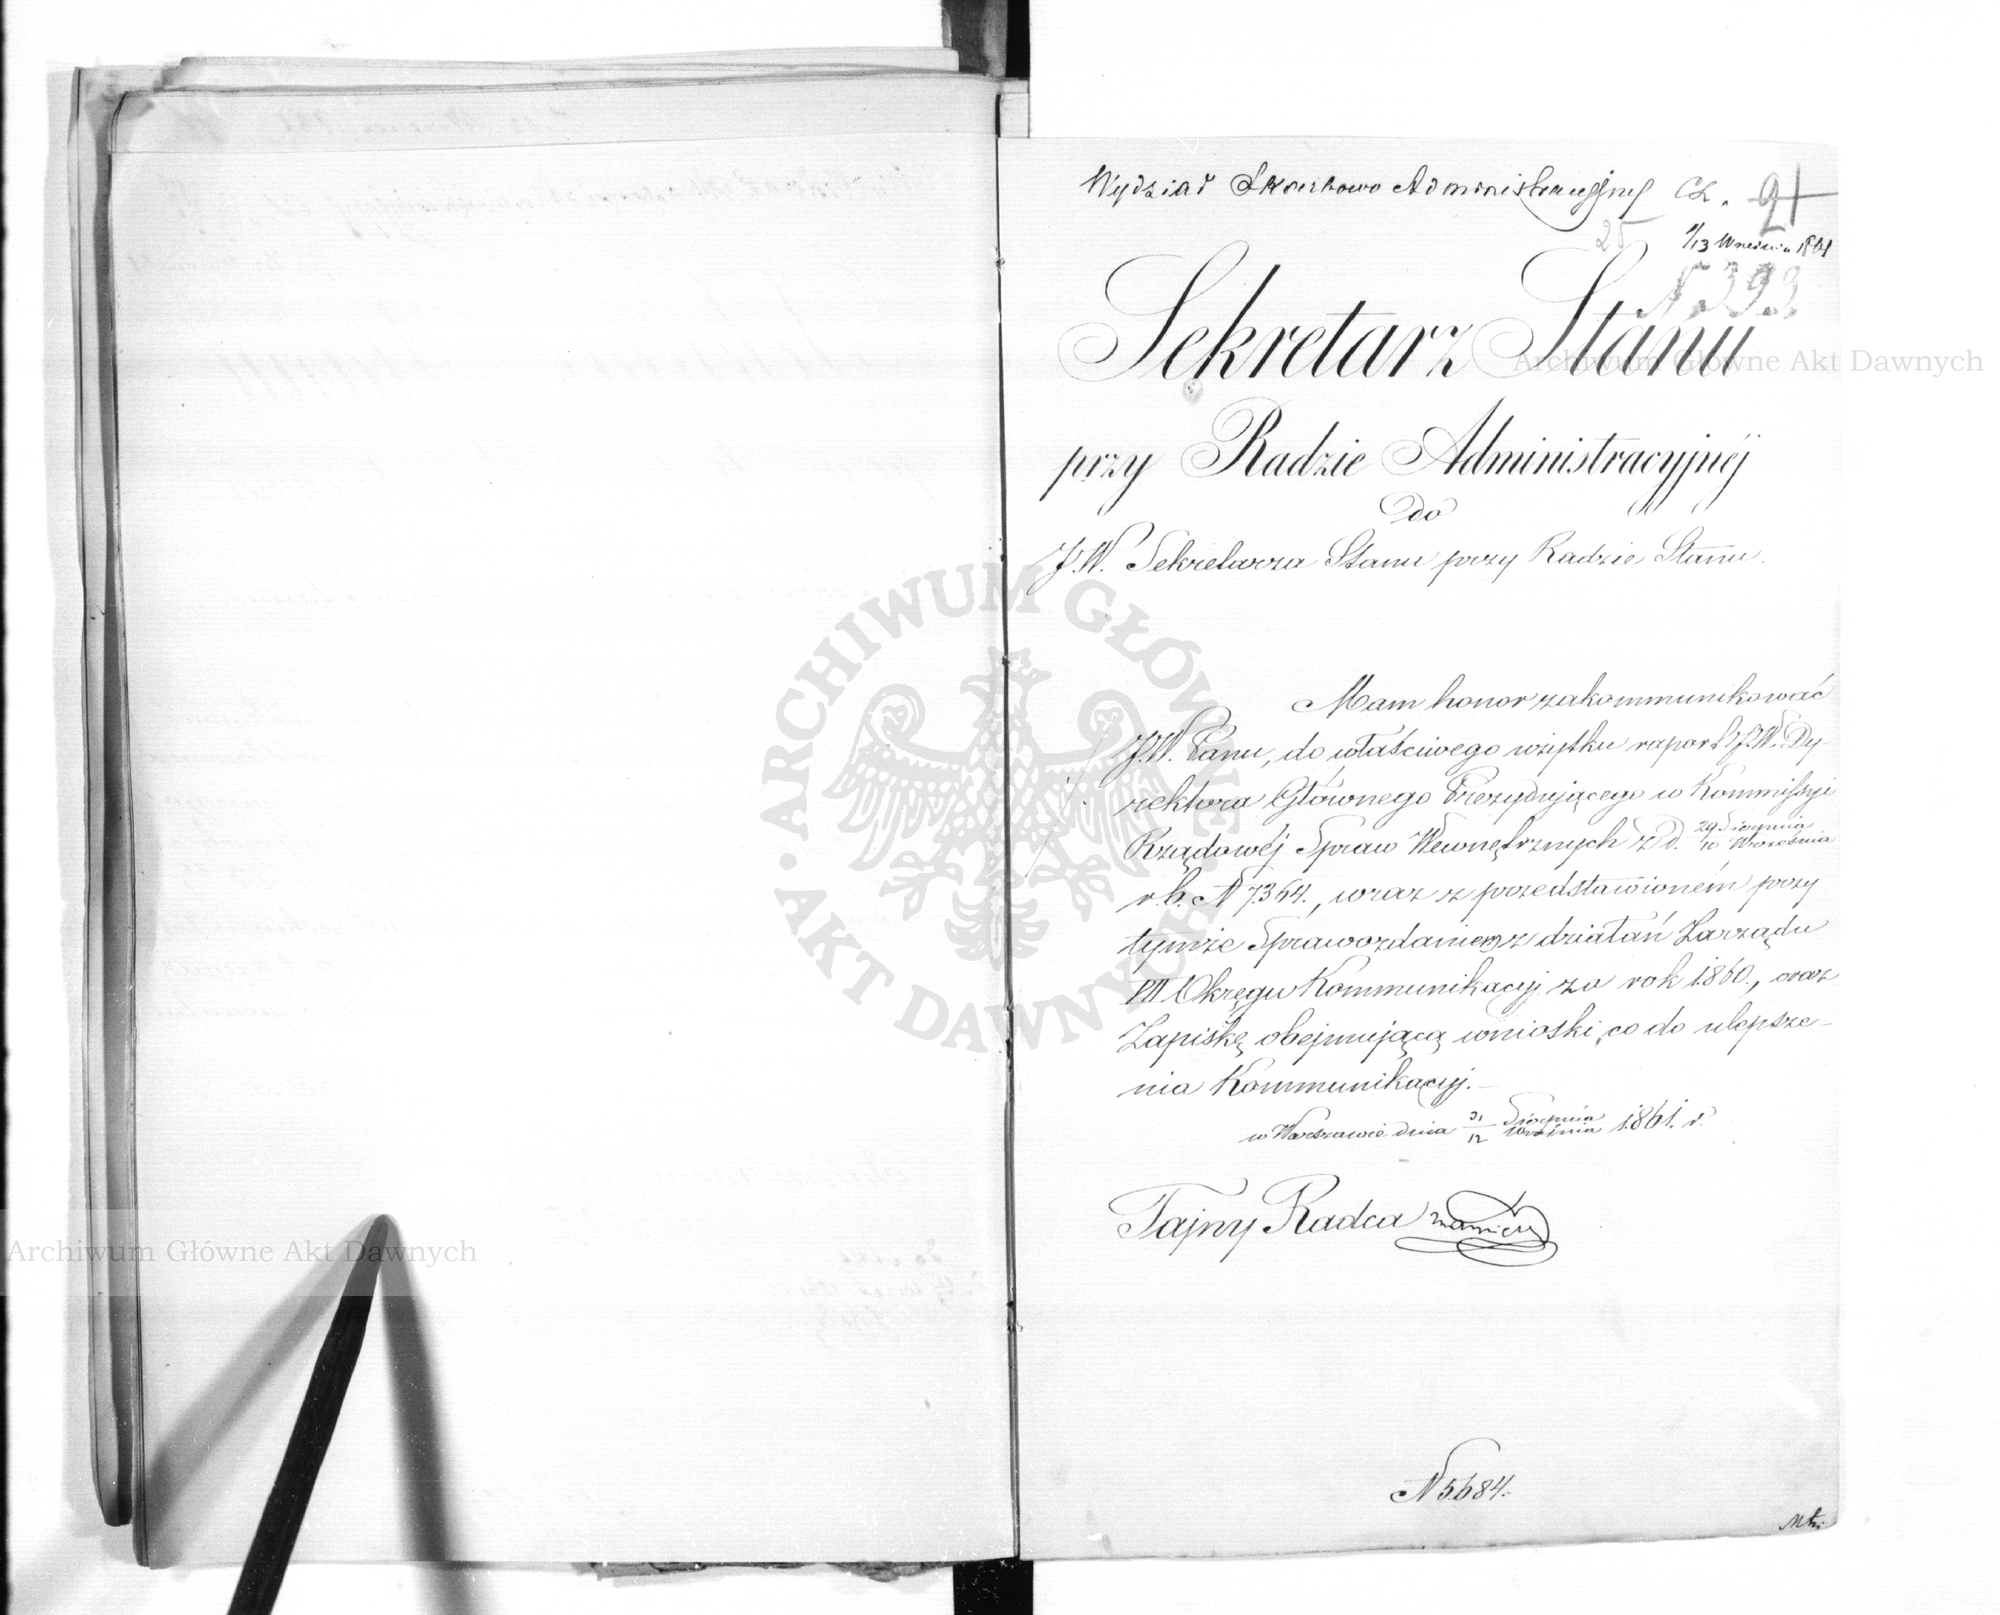 Wydział Skarbowo Administracyjny Cz. 21
25 1/13 Września 1861
N. 393.
Sekretarz Stanu
przy Radzie Administracyjnéj
Do
J.W. Sekretarza Stanu przy Radzie Stanu.
Mam honor zakommunikować
J.W. Panu, do właściwego użytku raport J.W. Dy-
rektora Głównego Prezydującego w Kommissyi
Rządowéj Spraw Wewnętrznych z d. 29 Sierpnia / 10 Września
r. b. N 7364., wraz z przedstawioném przy
tymże Sprawozdaniem z działań Zarządu
VII Okręgu Kommunikacyj za rok 1860., oraz
Zapiskę obejmującą wnioski, co do ulepsze-
nia Kommunikacyj.
w Warszawie dnia 31/12 Sierpnia/Września 1861. r.
Tajny Radca
N 5684.
Archiwum Główne Akt Dawnych
Archiwum Główne Akt Dawnych
ARCHIWUM GŁÓWNE AKT DAWNYCH